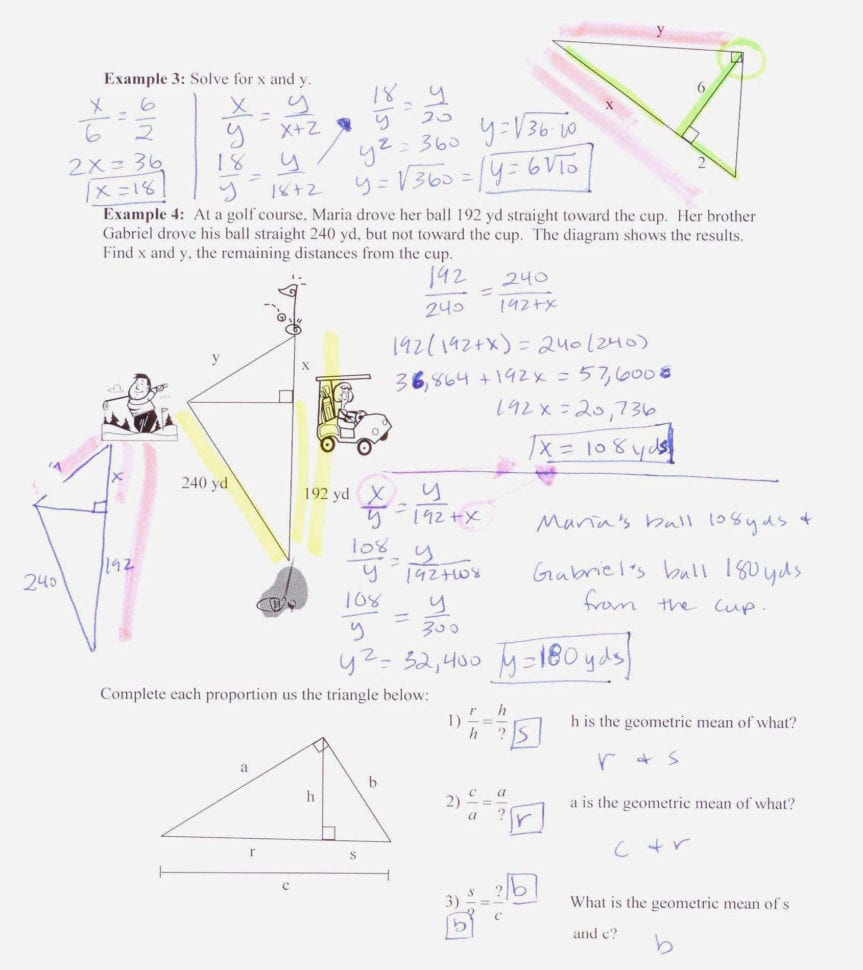 Example 3: Solve for x and y.
x/6 = 6/2
2x = 36
x = 18
x/y = y/x+2
18/y = y/18+2
18/y = y/20
y² = 360
y = √360 = y = 6√10
y = √36·10
y
x
6
2
Example 4: At a golf course, Maria drove her ball 192 yd straight toward the cup. Her brother
Gabriel drove his ball straight 240 yd, but not toward the cup. The diagram shows the results.
Find x and y, the remaining distances from the cup.
192/240 = 240/192+x
192(192+x) = 240(240)
36,864 + 192x = 57,600
192x = 20,736
x = 108 yds
y
x
240 yd
192 yd
y
x
240
192
x/y = y/192+x
108/y = y/192+108
108/y = y/300
y² = 32,400 y = 180 yds
Maria's ball 108 yds +
Gabriel's ball 180 yds
from the cup.
Complete each proportion us the triangle below:
a
b
h
r
s
c
1) r/h = h/? s
h is the geometric mean of what?
r + s
2) c/a = a/? r
a is the geometric mean of what?
c + r
3) s/? = ?/c b b
What is the geometric mean of s
and c?
b